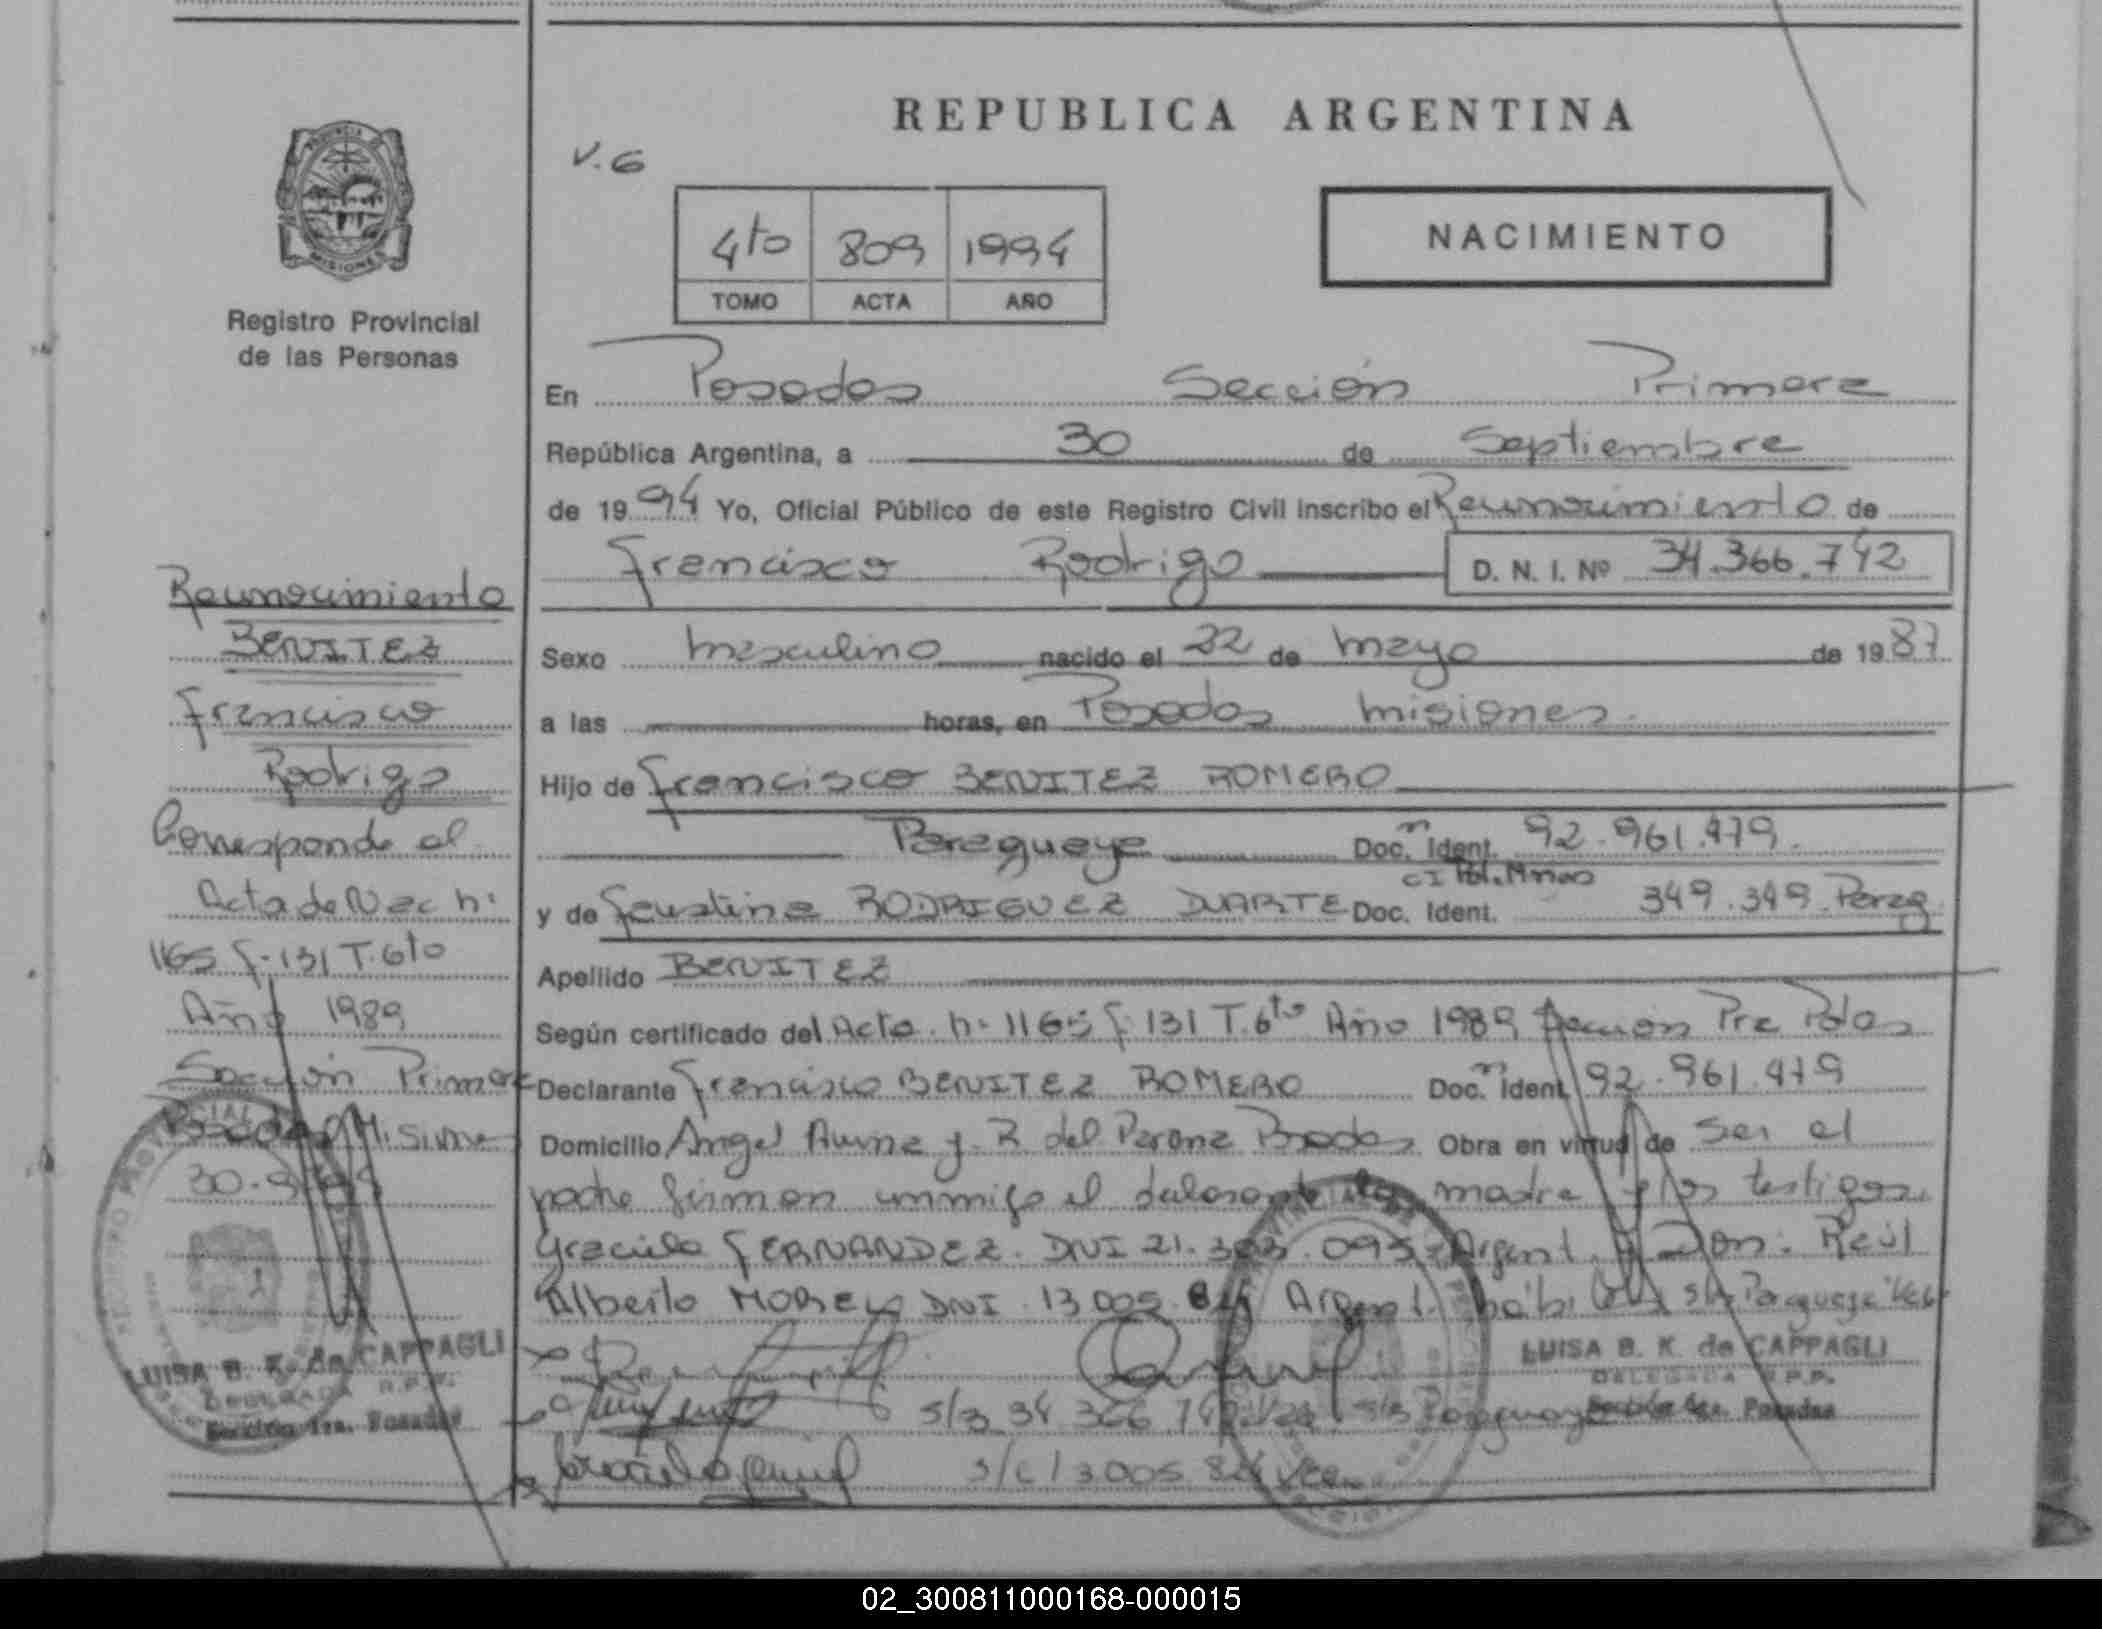 REPUBLICA ARGENTINA
V. 6
4to 809 1994
TOMO ACTA AÑO
NACIMIENTO
PROVINCIA DE
MISIONES
Registro Provincial
de las Personas
En Posadas Sección Primera
República Argentina, a 30 de Septiembre
de 1994 Yo, Oficial Público de este Registro Civil inscribo el Reconocimiento de
Francisco Rodrigo D. N. I. Nº 34.366.742
Sexo masculino nacido el 22 de mayo de 1987
a las horas, en Posadas Misiones.
Hijo de Francisco BENITEZ ROMERO
Paraguaya Doc. Ident. 92.961.479.
CI Pol. Mnes
y de Faustina RODRIGUEZ DUARTE Doc. Ident. 349.349. Parag
Apellido BENITEZ
Según certificado del Acta. nº 1165 f. 131 T. 6to Año 1989 Sección Pra Pdas
Declarante Francisco BENITEZ ROMERO Doc. Ident. 92.961.479
Domicilio Angel Acuña y R. del Parana Posadas Obra en virtud de ser el
padre firman conmigo el declarante la madre y los testigos
Graciela FERNANDEZ. DNI 21.303.093 Argent. y Don. Raúl
Alberto MOREL DNI 13.005. Argent. s/r Paraguaya Vale
s/r 34 366 742 Vale s/r Paraguaya
s/r 13.005. Vale
LUISA B. K. de CAPPAGLI
DELEGADA R.P.P.
Sección 1ra. Posadas
Reconocimiento
BENITEZ
Francisco
Rodrigo
Corresponde al
Acta de Nac nº
1165 f. 131 T. 6to
Año 1989
Sección Primera
Posadas Misiones
30.9.94
LUISA B. K. de CAPPAGLI
DELEGADA R.P.P.
Sección 1ra. Posadas
02_300811000168-000015